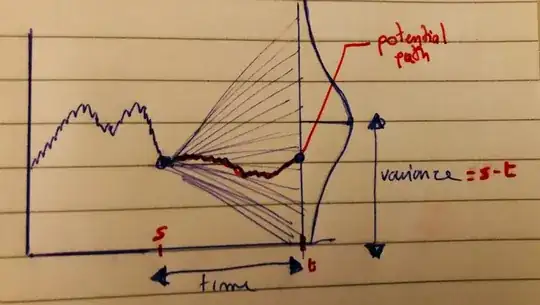 potential
path
variance = s-t
s
t
time